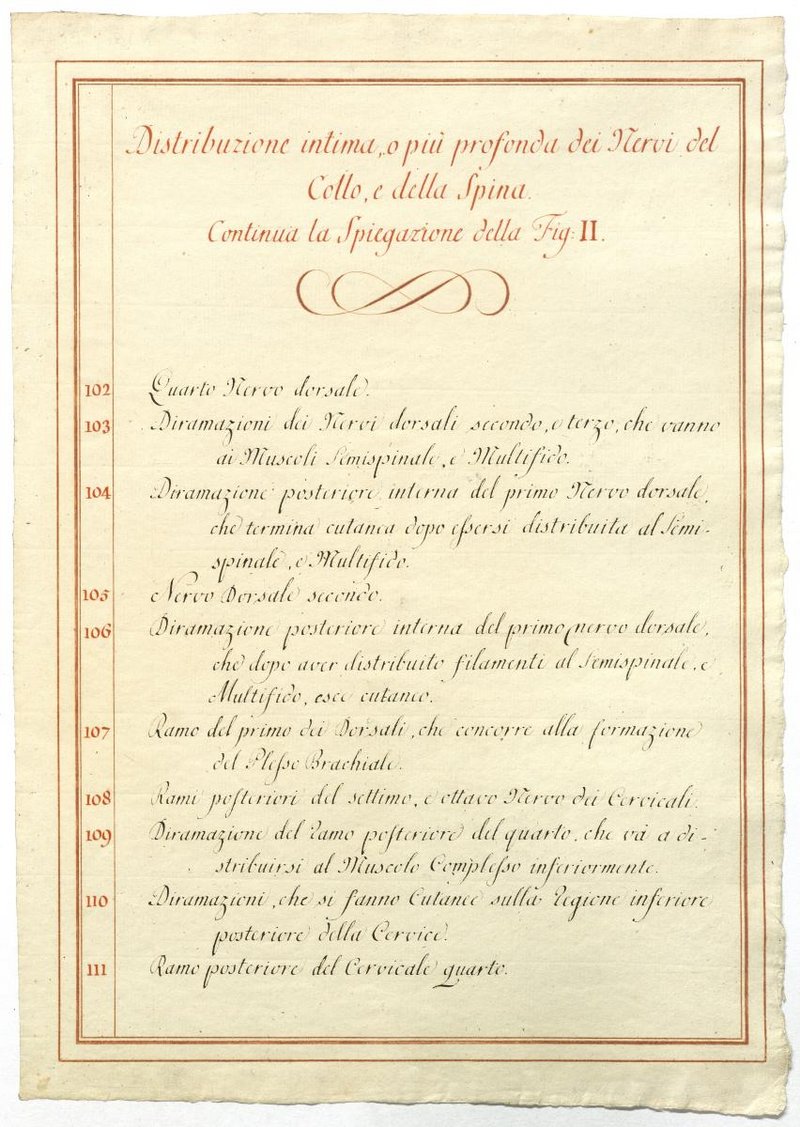 Distribuzione intima, o più profonda dei Nervi del
Collo, e della Spina.
Continua la Spiegazione della Fig: II.
102 Quarto Nervo dorsale.
103 Diramazioni dei Nervi dorsali secondo, e terzo, che vanno
ai Muscoli Semispinale, e Multifido.
104 Diramazione posteriore interna del primo Nervo dorsale,
che termina cutanea dopo essersi distribuita al Semi-
spinale, e Multifido.
105 Nervo Dorsale secondo.
106 Diramazione posteriore interna del primo nervo dorsale,
che dopo aver distribuito filamenti al Semispinale, e
Multifido, esce cutaneo.
107 Ramo del primo dei Dorsali, che concorre alla formazione
del Plesso Brachiale.
108 Rami posteriori del settimo, e ottavo Nervo dei Cervicali.
109 Diramazione del ramo posteriore del quarto, che và a di-
stribuirsi al Muscolo Complesso inferiormente.
110 Diramazioni, che si fanno Cutanee sulla regione inferiore
posteriore della Cervice.
111 Ramo posteriore del Cervicale quarto.